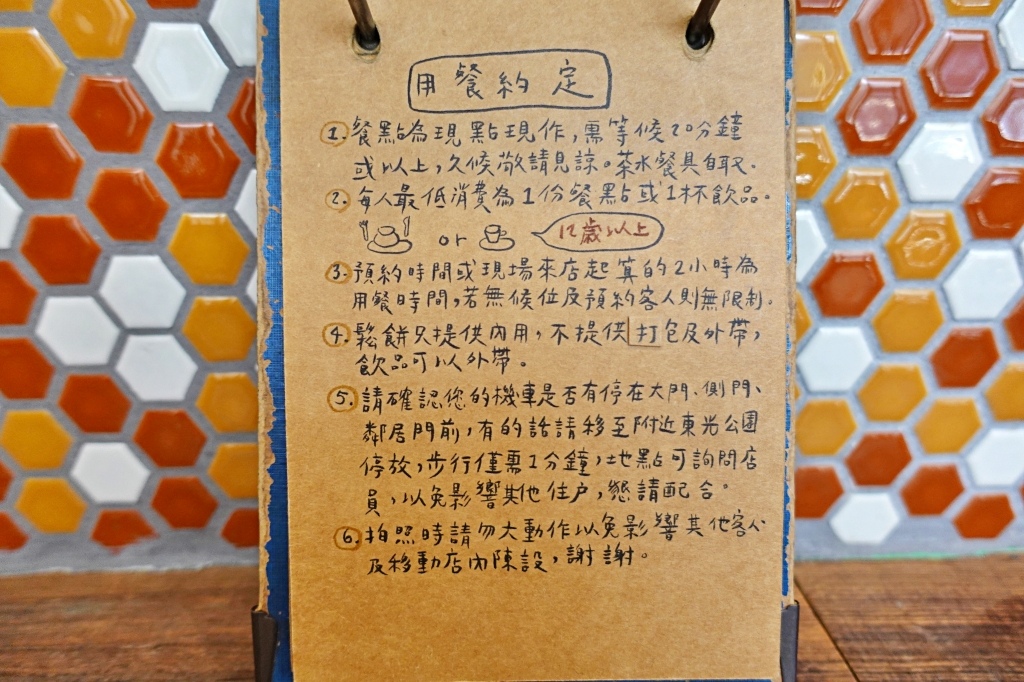 用餐約定
1. 餐點為現點現作，需等候20分鐘
或以上，久候敬請見諒。茶水餐具自取。
2. 每人最低消費為1份餐點或1杯飲品。
or 12歲以上
3. 預約時間或現場來店起算的2小時為
用餐時間，若無候位及預約客人則無限制。
4. 鬆餅只提供內用，不提供打包及外帶，
飲品可以外帶。
5. 請確認您的機車是否有停在大門、側門、
鄰居門前，有的話請移至附近東光公園
停放，步行僅需1分鐘，地點可詢問店
員，以免影響其他住戶，懇請配合。
6. 拍照時請勿大動作以免影響其他客人
及移動店內陳設，謝謝。